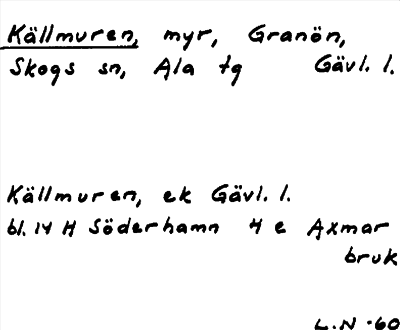 Källmuren, myr, Granön,
Skogs sn, Ala tg Gävl. l.
Källmuren, ek Gävl. l.
bl. 14 H Söderhamn 4 e Axmar
bruk
L.N -60